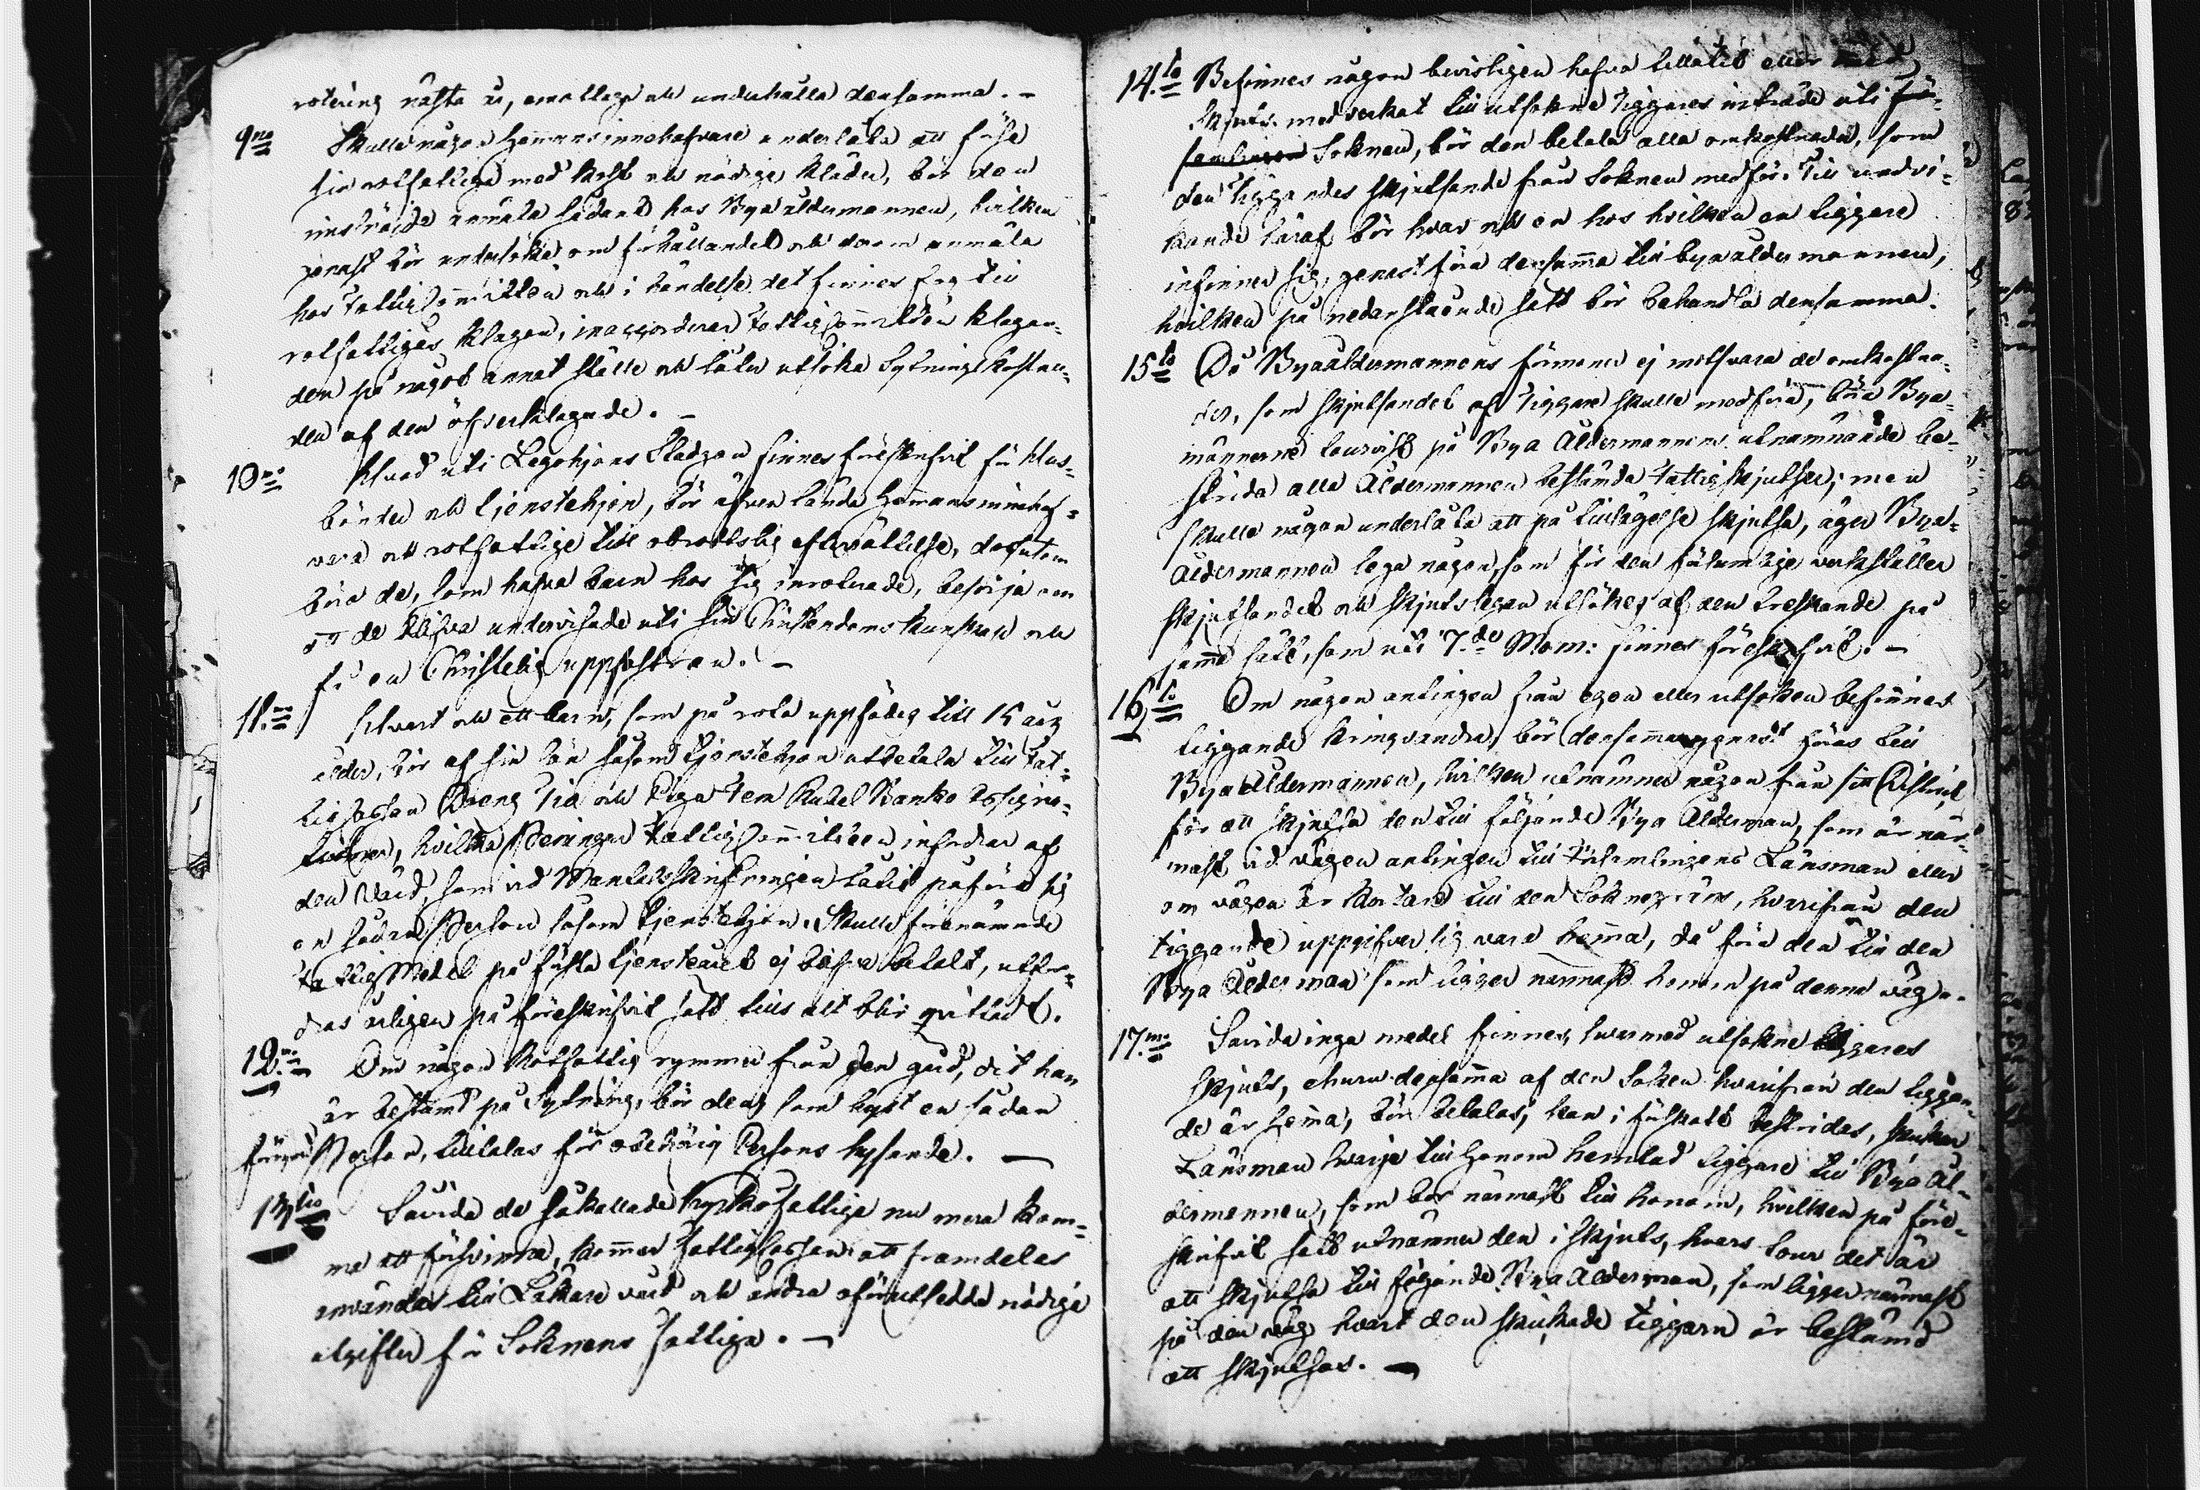 rotering nästa år, emottaga och underhålla densamma. –
9no Skulle någon Hemmansinnehafvare underlåta att förse
sin rotfattiga med kost och nödige kläder, bör den
anmäla sådant hos Byaåldermannen, hvilken
genast bör undersöka om förhållandet och derom anmäla
hos Fattig Committéen och i händelse det finnes fog till
rotfattiges klagan, inaccorderar Fattig Committéen klagan-
den på något annat ställe och låter utsöka Sytningskostna-
den af den öfverklagade. –
10mo Hvad uti Legohjons Stadgan finnes föreskrifvit för Hus-
bönder och tjenstehjon, bör äfven lända Hemmansinnehaf-
vare och rotfattige till obrottslig efterrättelse, dessutom
böra de, som hafva barn hos sig inroterade, besörja om
att de blifva undervisade uti sin Christendoms kunskap och
få en Christelig uppfostran. –
11mo Hvart och ett barn, som på rota uppfödes till 15 års
ålder, bör af sin lön såsom tjenstehjon utbetala till Fat-
tigkassan Dreng Tio och Piga Fem Rubel Banko Assigna-
tioner, hvilka Penningar Fattig Committéen infordrar af
den Värd, som vid Mantalsskrifningen låtit påföra sig
en sådan Person såsom tjenstehjon. Skulle förenämnde
Fattig Medel på första tjensteåret ej blifva betalt, utfor-
dras årligen på föreskrifvit sätt tills allt blir qvittadt.
12mo Om någon Rotfattig rymmer från den gård, dit han
är bestämd på Sytning, bör den, som hyst en sådan
förrymd Person, tilltalas för obehörig Persons hysande. –
13tio Såvida de såkallade Kyrkofattiga nu mera kom-
ma att försvinna, kommer Fattigkassan att framdeles
användas till Läkare vård och andra oförutsedda nödiga
utgifter för Soknens Fattiga. –
14to Befinnes någon bevisligen hafva tillåtit eller med
Skjuts medverkat till utsokne Tiggares inträde uti för-
samlingen Soknen, bör den betala alla omkostnader, som
den Tiggandes skjutsande från Soknen medför. Till undvi-
kande häraf bör hvar och en hos hvilken en tiggare
infinner sig, genast föra densamma till byaåldermannen,
hvilken på nedanstående sätt bör behandla densamma.
15to Då Byaåldermannens förmoner ej motsvara de omkostna-
der, som skjutsandet af Tiggare skulle medföra, böra Bya-
männerne tourvist på Bya Åldermannens utnämnande be-
strida alla Åldermannen bestämda Fattigskjutser; men
skulle någon underlåta att på tillsägelse skjutsa, äger Bya-
Åldermannen lega någon, som för den försumlige verkställer
skjutsandet och skjutslegan utsökes af den treskande på
samma sätt, som uti 7de Mom: finnes föreskrifvit. –
16to Om någon antingen från egen eller utsoken befinnes
tiggande kringvandra, bör densamma genast föras till
Bya Åldermannen, hvilken utnämner någon från sitt District
för att skjutsa den till följande Bya Ålderman, som är när-
mast vid vägen antingen till Församlingens Länsman eller
om vägen är kortare till den Sokne, hvarifrån den
tiggande uppgifver sig vara hemma, då föra den till den
Bya Ålderman som ligger närmast honom på denna väg.
17mo Såvida inga medel finnes, hvarmed utsokne tiggares
skjuts, ehuru densamma af den Soken hvarifrån den tiggan-
de är hemma, bör betalas, kan i förskott bestridas, skickar
Länsman hvarje till Honom hemtad tiggare till Bya Ål-
dermannen, som bor närmast till honom, hvilken på före-
skrifvit sätt utnämner den i skjuts, hvars tour det är
att skjutsa till följande Bya Ålderman, som ligger närmast
på den väg hvart den skickade tiggaren är bestämd
att skjutsas. –